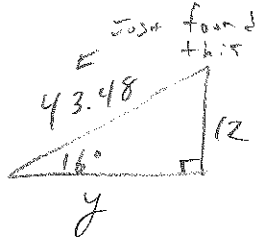 Just found
this
43.48
12
16°
y